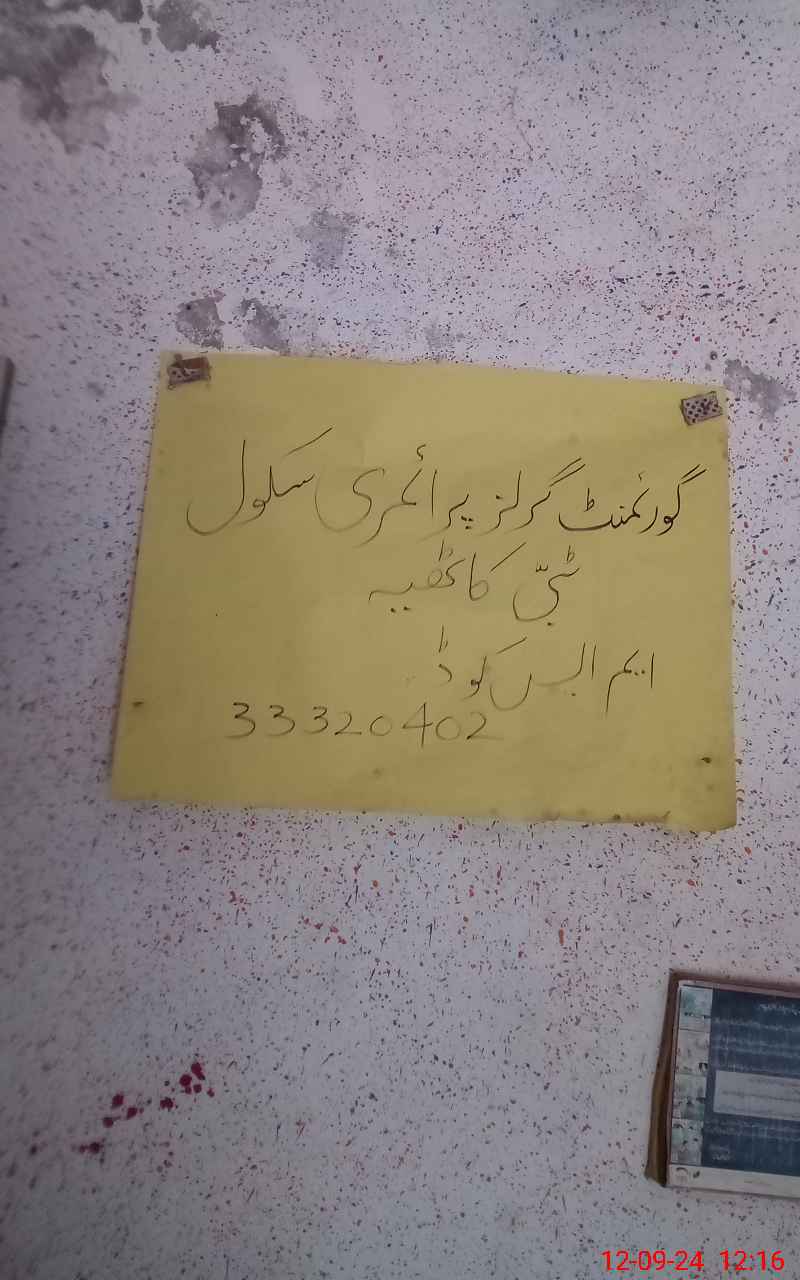 گورنمنٹ گرلز پرائمری سکول
ٹبّی کاٹھیہ
ایم ایس کوڈ
33320402
12-09-24 12:16